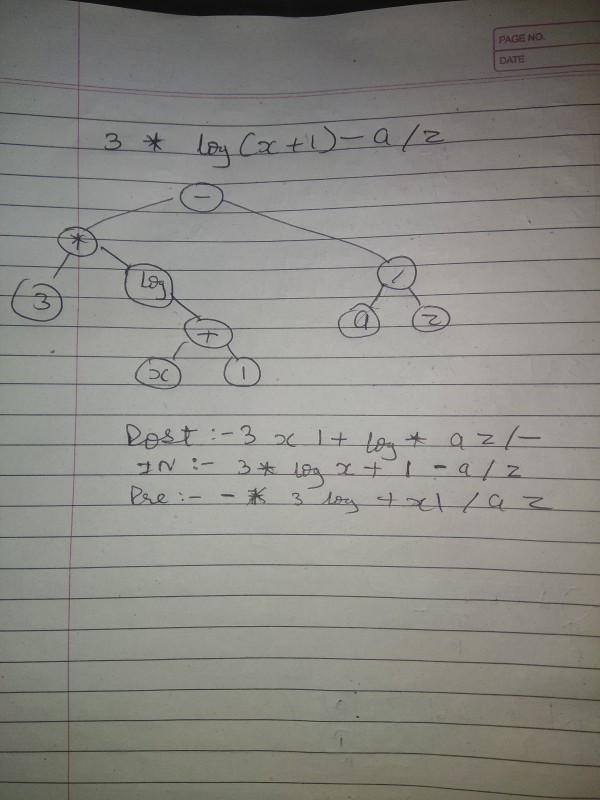 PAGE NO.
DATE
3 * log(x+1) - a/z
-
* /
3 log a z
+
x 1
Post :- 3 x 1 + log * a z / -
IN :- 3 * log x + 1 - a / z
Pre :- - * 3 log + x 1 / a z